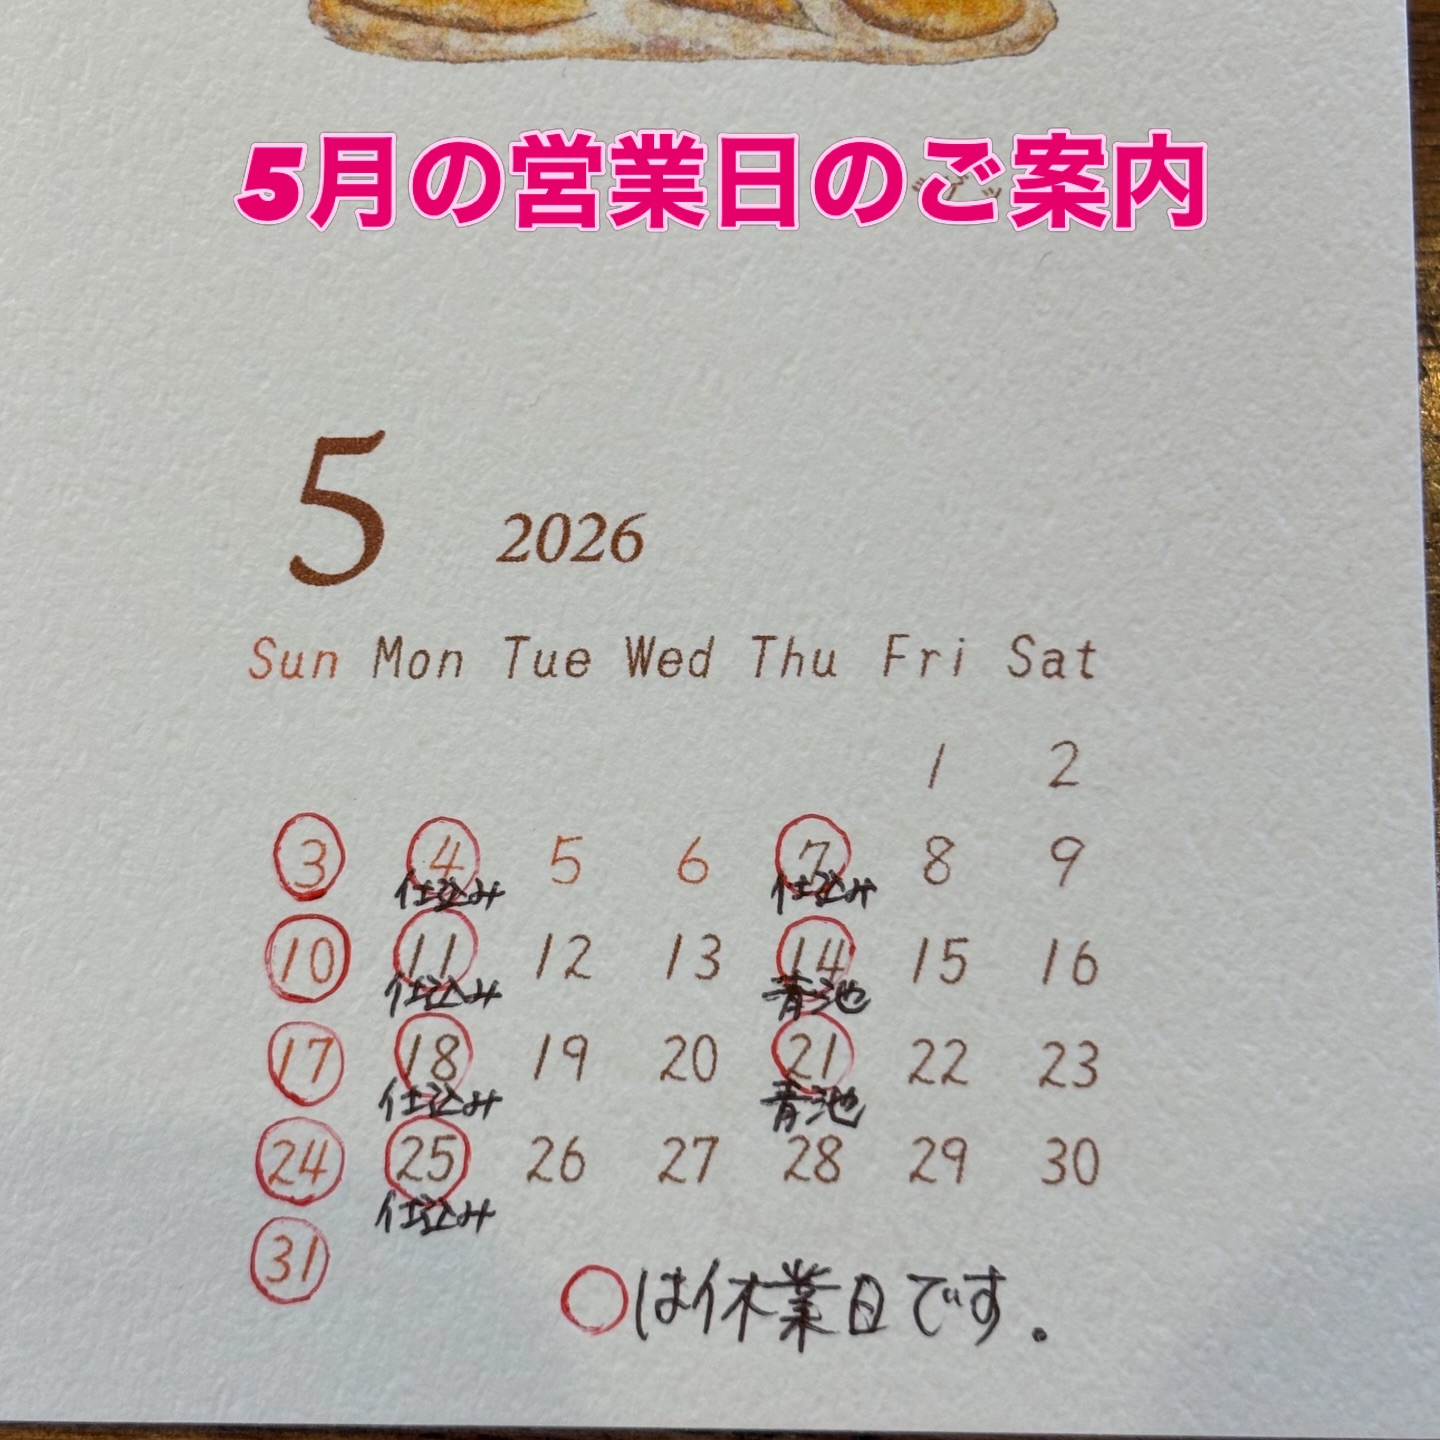 5月の営業日のご案内
5 2026
Sun Mon Tue Wed Thu Fri Sat
1 2
3 4 5 6 7 8 9
仕込み 仕込み
10 11 12 13 14 15 16
仕込み 青池
17 18 19 20 21 22 23
仕込み 青池
24 25 26 27 28 29 30
仕込み
31
○は休業日です.